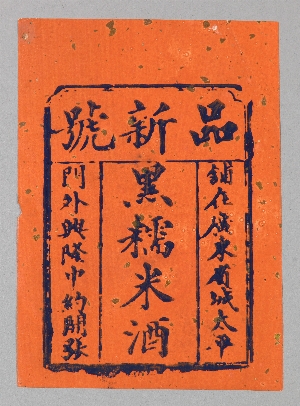 品新號
舖在廣東省城太平
黑糯米酒
門外興隆中約開張